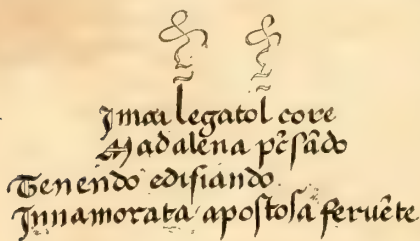 Jmai legatol core
Madalena pēsādo
Tenendo edifiando
Innamorata apostola feruēte